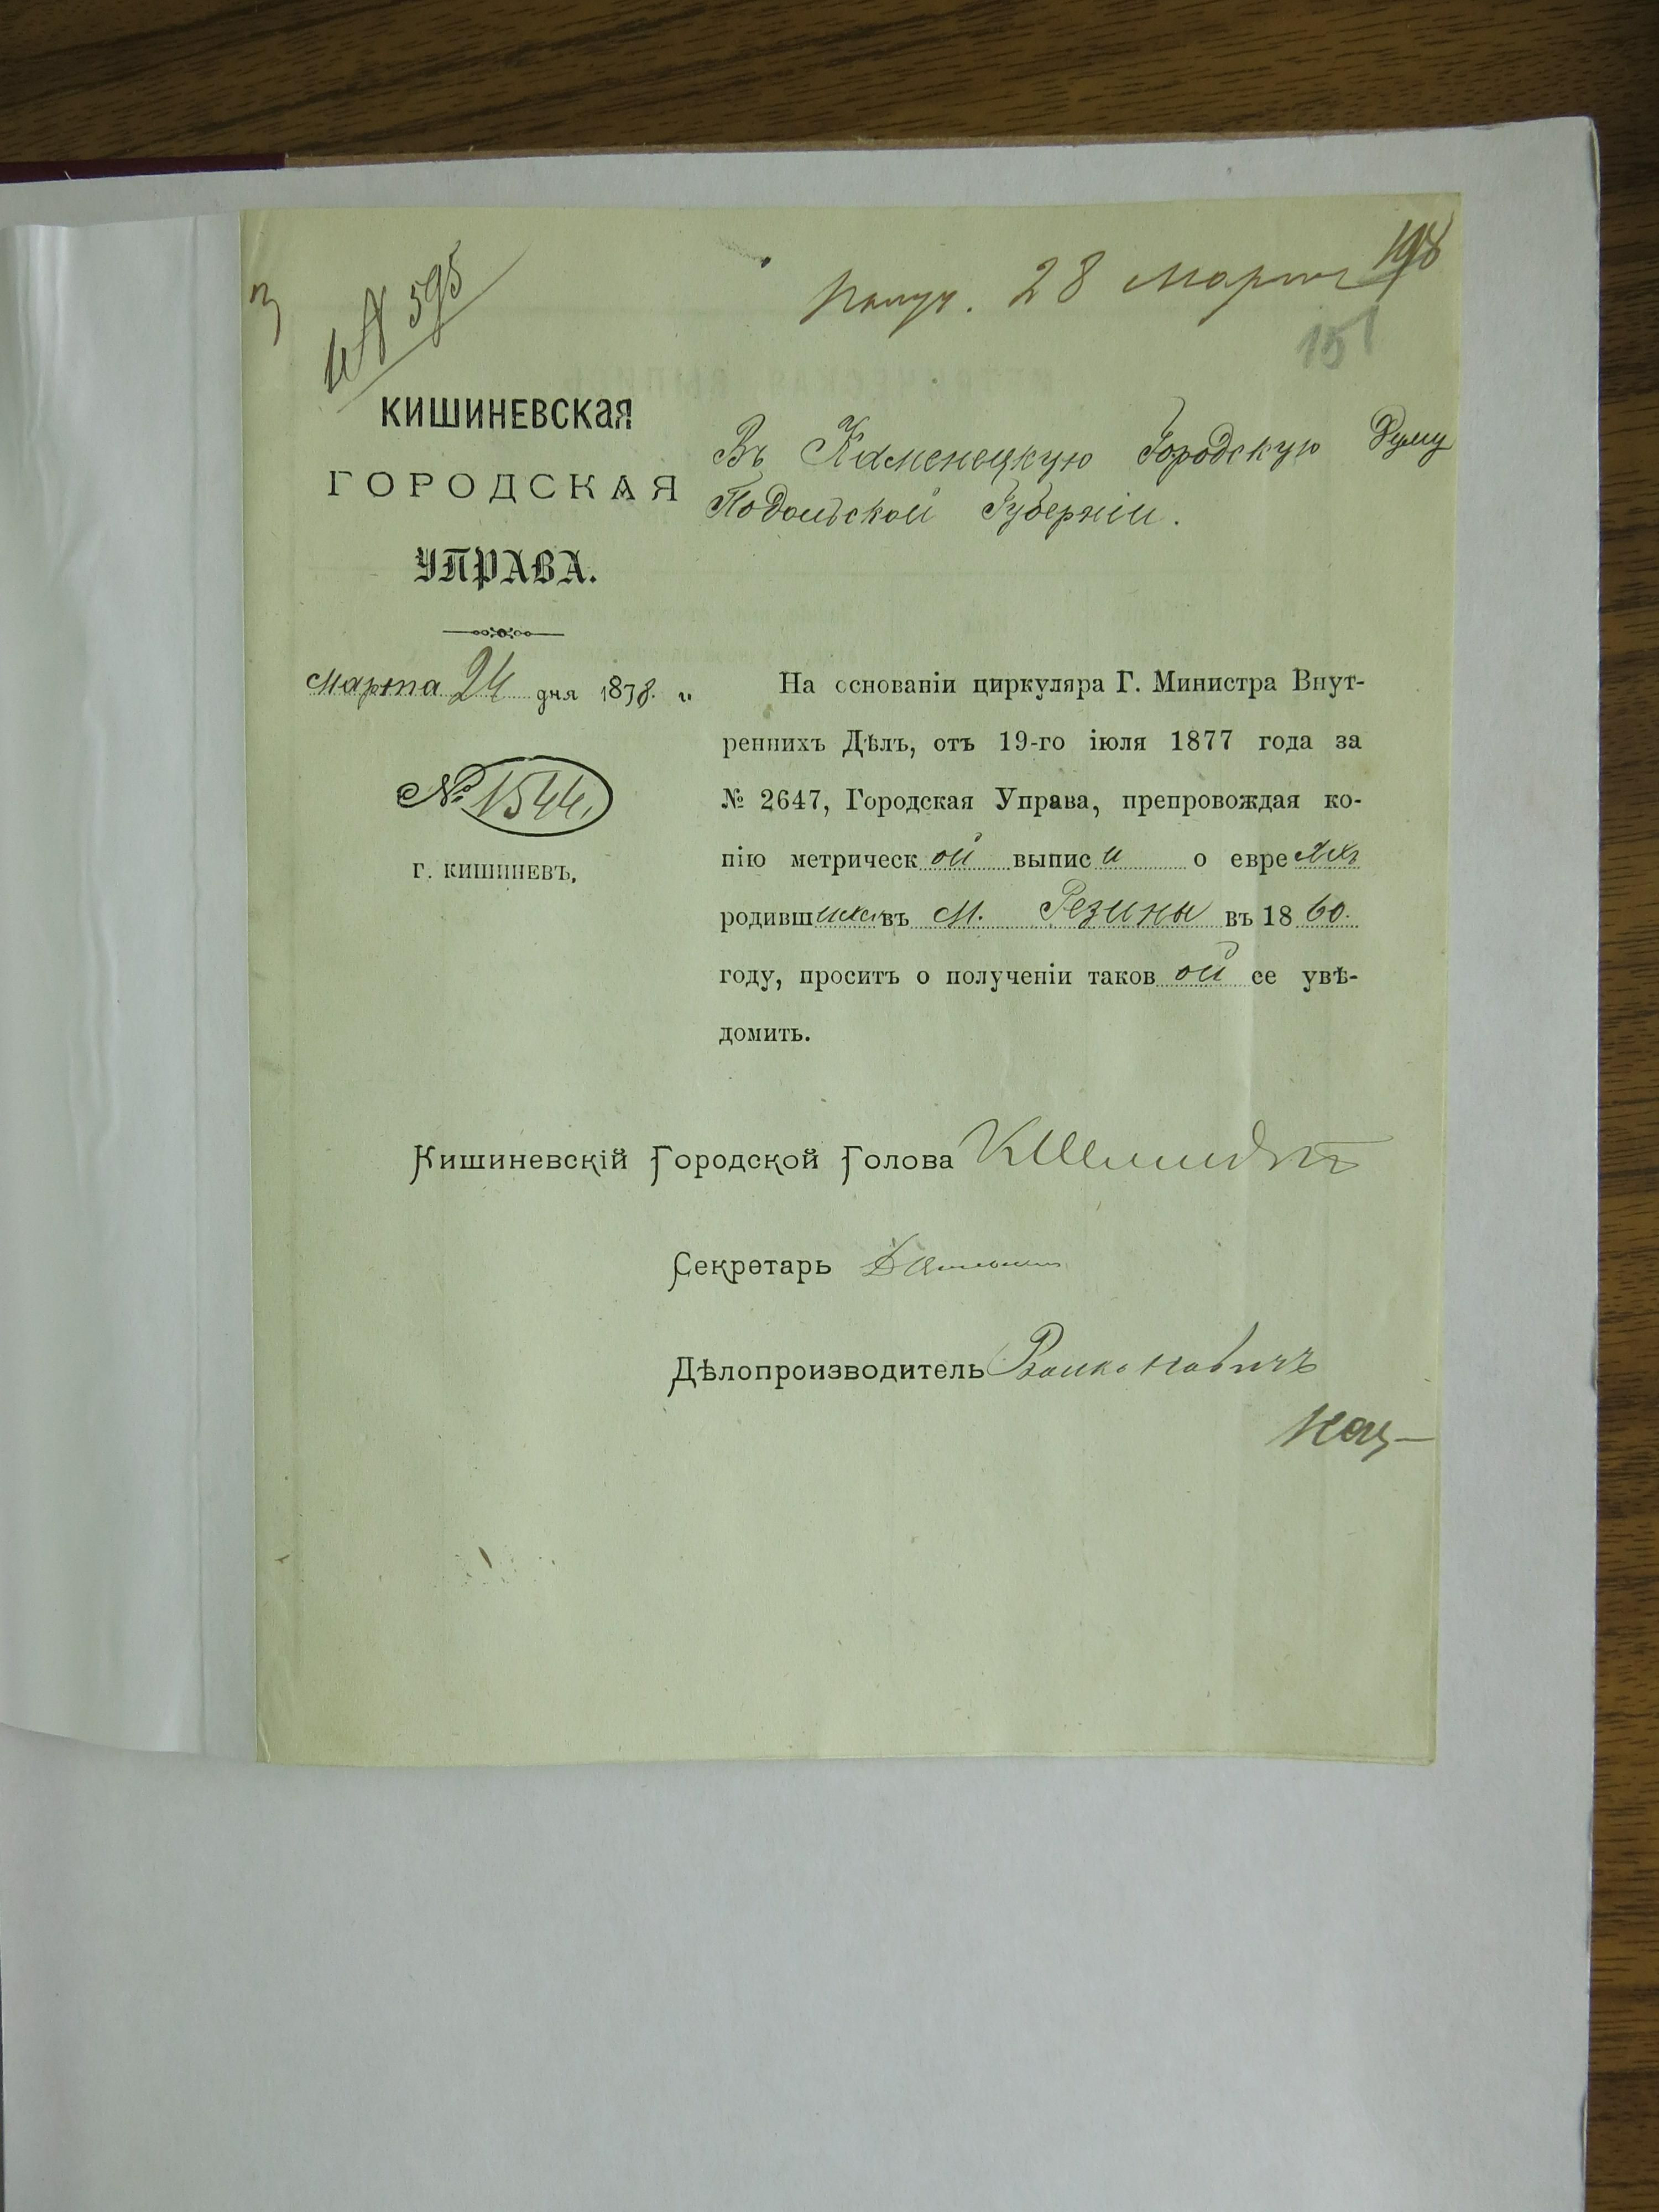 198
Получ. 28 Марта
№ 595
151
КИШИНЕВСКАЯ
ГОРОДСКАЯ
УПРАВА.
Въ Каменецкую Городскую Думу
Подольской Губерніи.
Марта 24 дня 1878 г.
№ 1544.
Г. КИШИНЕВЪ.
На основаніи циркуляра Г. Министра Внут-
реннихъ Дѣлъ, отъ 19-го іюля 1877 года за
№ 2647, Городская Управа, препровождая ко-
пію метрической выписи о евреяхъ
родившихся въ м. Резины въ 1860.
году, просить о полученіи таковой ее увѣ-
домить.
Кишиневскій Городской Голова КШмидтъ
Секретарь
Дѣлопроизводитель